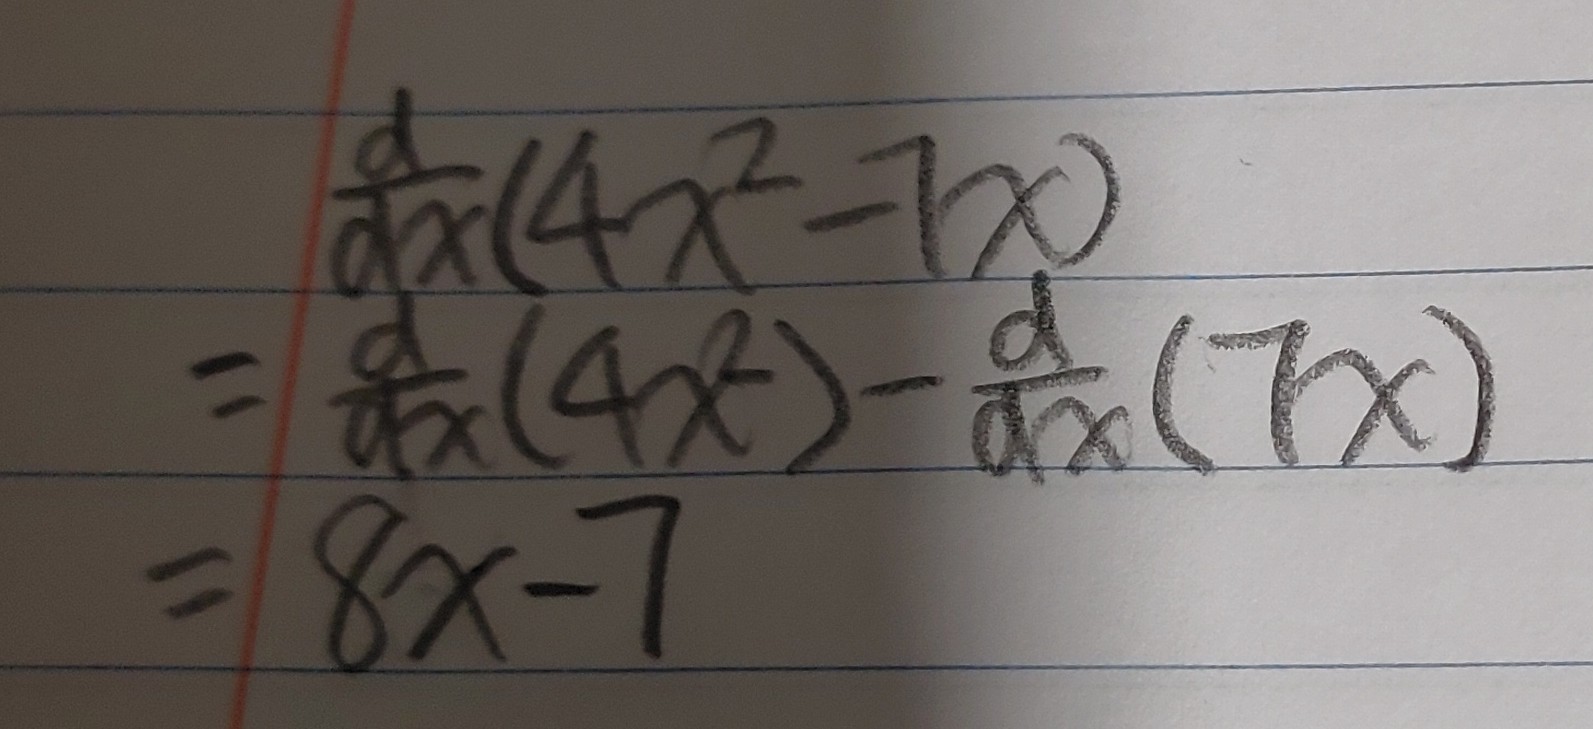 d/dx(4x²-7x)
= d/dx(4x²) - d/dx(7x)
= 8x-7